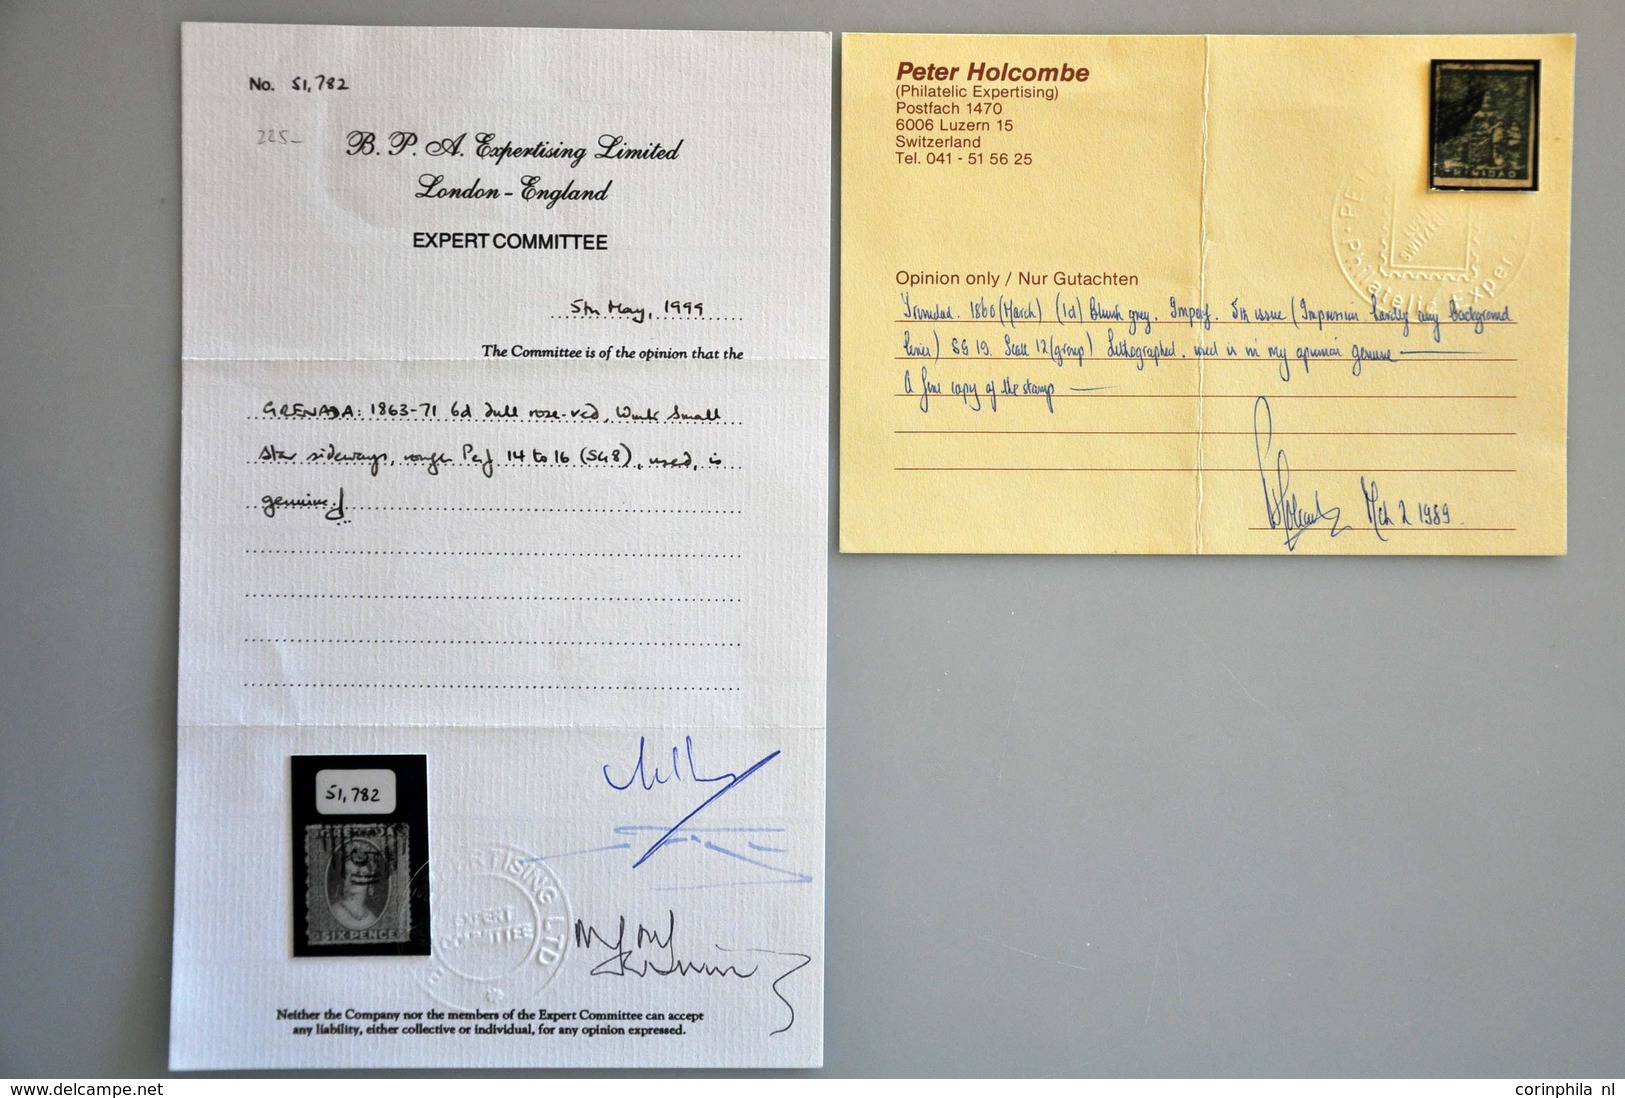 No. 51,782
225-
B. P. A. Expertising Limited
London - England
EXPERT COMMITTEE
5th May, 1999
The Committee is of the opinion that the
GRENADA: 1863-71 6d dull rose-red, Wmk Small
Star sideways, rough Perf 14 to 16 (SG8), used, is
genuine.
51,782
SIX PENCE
EXPERTISING LTD
EXPERT
COMMITTEE
Neither the Company nor the members of the Expert Committee can accept
any liability, either collective or individual, for any opinion expressed.
Peter Holcombe
(Philatelic Expertising)
Postfach 1470
6006 Luzern 15
Switzerland
Tel. 041 - 51 56 25
TRINIDAD
Philatelic Exper
Opinion only / Nur Gutachten
Trinidad. 1860 (March) (1d) Bluish grey. Imperf. 5th issue (Impression hardly any background
lines) SG 19. Scott 12 (group) Lithographed. used is in my opinion genuine
A fine copy of the stamp
Mch 2 1989.
www.delcampe.net
corinphila nl